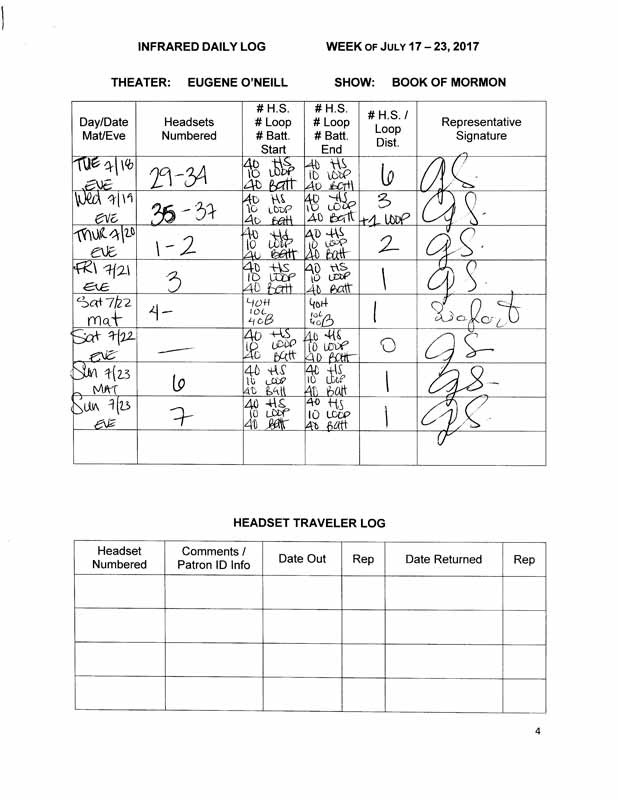 INFRARED DAILY LOG WEEK OF JULY 17 – 23, 2017
THEATER: EUGENE O'NEILL SHOW: BOOK OF MORMON
Day/Date Mat/Eve | Headsets Numbered | # H.S. # Loop # Batt. Start | # H.S. # Loop # Batt. End | # H.S. / Loop Dist. | Representative Signature
TUE 7/18 EVE | 29-34 | 40 HS 10 LOOP 40 Batt | 40 HS 10 LOOP 40 Batt | 6 | GS.
Wed 7/19 EVE | 35-37 | 40 HS 10 LOOP 40 Batt | 40 HS 10 LOOP 40 Batt | 3 +1 LOOP | GS.
THUR 7/20 EVE | 1-2 | 40 HS 10 LOOP 40 Batt | 40 HS 10 LOOP 40 Batt | 2 | GS.
FRI 7/21 EVE | 3 | 40 HS 10 LOOP 40 Batt | 40 HS 10 LOOP 40 Batt | 1 | GS.
Sat 7/22 mat | 4- | 40H 10L 40B | 40H 10L 40B | 1
Sat 7/22 EVE | — | 40 HS 10 LOOP 40 Batt | 40 HS 10 LOOP 40 Batt | 0 | GS
Sun 7/23 MAT | 6 | 40 HS 10 LOOP 40 Batt | 40 HS 10 LOOP 40 Batt | 1 | GS
Sun 7/23 EVE | 7 | 40 HS 10 LOOP 40 Batt | 40 HS 10 LOOP 40 Batt | 1 | GS.
HEADSET TRAVELER LOG
Headset Numbered | Comments / Patron ID Info | Date Out | Rep | Date Returned | Rep
4